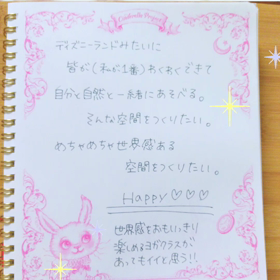 ディズニーランドみたいに
皆が(私が1番)わくわくできて
自分と自然と一緒にあそべる。
そんな空間をつくりたい。
めちゃめちゃ世界感ある
空間をつくりたい。
Happy♡♡♡
世界感をおもいっきり
楽しめるヨガクラスが
あってもイイと思う!!